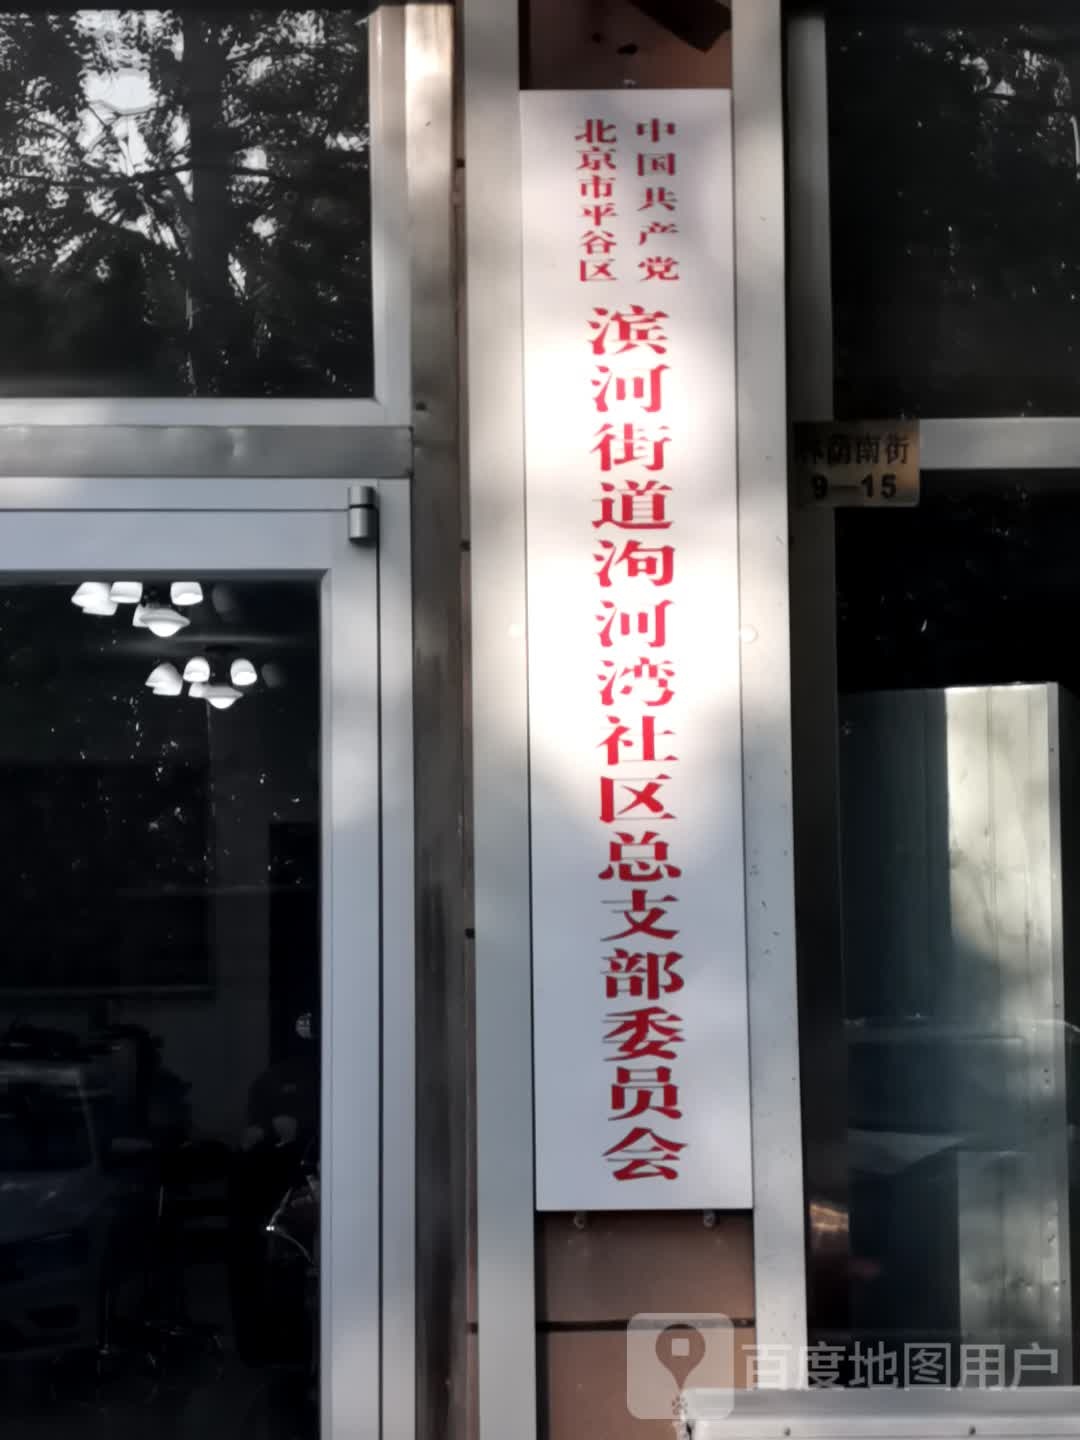 中国共产党
北京市平谷区
滨河街道洵河湾社区总支部委员会
林荫南街
9—15
百度地图用户